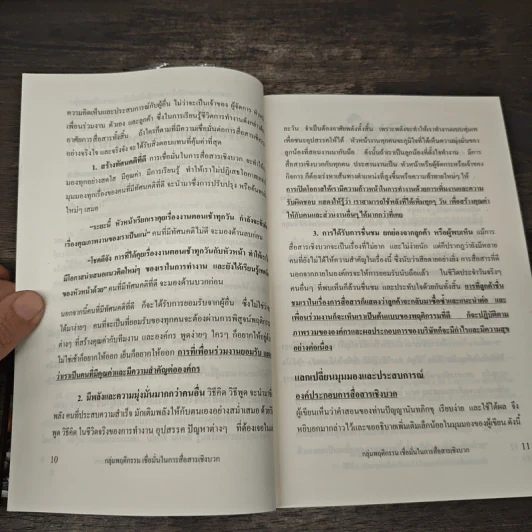 ความคิดเห็นและประสบการณ์กับผู้อื่น ไม่ว่าจะเป็นเจ้าของ ผู้จัดการ หัว
เพื่อนร่วมงาน ตัวเอง และลูกค้า ซึ่งในการเรียนรู้ชีวิตการทำงานดังกล่าว
อาศัยการสื่อสารทั้งสิ้น ถ้าใครก็ตามที่มีความเชื่อมั่นต่อการสื่อสารเชิง
อย่างจริงใจ และจริงจัง จะได้รับสิ่งตอบแทนที่คุ้มค่าที่สุด
1. สร้างทัศนคติที่ดี การเชื่อมั่นในการสื่อสารเชิงบวก จะทำให้
มองทุกอย่างสดใส มีคุณค่า มีการเรียนรู้ ทำให้เราไม่ปฏิเสธโอกาส
มุมมองทุกเรื่องของคนที่มีทัศนคติที่ดี จะนำมาซึ่งการปรับปรุง หรือค้นพบ
ใหม่ๆ เสมอ
“ระยะนี้ หัวหน้าเรียกเราคุยเรื่องงานตอนเช้าทุกวัน กำลังจะจับผิด
เรื่องคุณภาพงานของเราเป็นแน่” คนที่มีทัศนคติไม่ดี จะมองด้านลบก่อน
“โชคดีจัง การที่ได้คุยเรื่องงานตอนเช้าทุกวันกับหัวหน้า ทำให้เรา
มีโอกาสนำเสนอแนวคิดใหม่ๆ ของเราในการทำงาน และยังได้เรียนรู้เทคนิค
ของหัวหน้าด้วย” คนที่มีทัศนคติที่ดี จะมองด้านบวกก่อน
นอกจากนี้คนที่มีทัศนคติที่ดี ก็จะได้รับการยอมรับจากผู้อื่น ซึ่งไม่ใช่
ได้มาง่ายๆ คนที่จะเป็นที่ยอมรับของทุกคนจะต้องผ่านการพิสูจน์พฤติกรรม
ต่างๆ ที่สร้างคุณค่ากับทีมงาน และองค์กร พูดง่ายๆ ใครๆ ก็อยากให้อยู่
ไม่ใช่เช้าก็อยากให้ออก เย็นก็อยากให้ออก การที่เพื่อนร่วมงานยอมรับ
ว่าเราเป็นคนที่มีคุณค่าและมีความสำคัญต่อองค์กร
2. มีพลังและความมุ่งมั่นมากกว่าคนอื่น วิธีคิด วิธีพูด จะนำมาซึ่ง
พลัง คนที่ประสบความสำเร็จ มักเติมพลังให้กับตนเองอย่างสม่ำเสมอ ด้วย
พูด วิธีคิด ในชีวิตจริงของการทำงาน อุปสรรค ปัญหาต่างๆ ที่ต้องเจอใน
10 กลุ่มพฤติกรรม เชื่อมั่นในการสื่อสารเชิงบวก
ละวัน จำเป็นต้องอาศัยพลังทั้งสิ้น เพราะพลังจะทำให้เราทำงานแบบทุ่มเท
เพื่อชนะอุปสรรคให้ได้ หัวหน้างานทุกคนจะภูมิใจที่ได้เห็นความมุ่งมั่นของ
ลูกน้องที่สอนงานมากับมือ ดังนั้นถ้าเราเป็นลูกน้องที่ตั้งใจทำงาน มีการ
สื่อสารเชิงบวกกับทุกคน ประสานงานเป็น หัวหน้าหรือผู้จัดการหรือเจ้าของ
กิจการ ก็ต้องสร้างเส้นทางตำแหน่งที่สูงขึ้นหรือให้ความท้าทายใหม่ๆ ให้
การเปิดโอกาสให้เรามีความก้าวหน้าในการทำงานด้วยการเพิ่มงานและความ
รับผิดชอบ แสดงให้รู้ว่า เราสามารถใช้พลังที่ได้เพิ่มทุกๆ วัน เพื่อสร้างคุณค่า
ให้กับตนเองและส่วนงานอื่นๆ ได้มากกว่าที่เคย
3. การได้รับการชื่นชม ยกย่องจากลูกค้า หรือผู้พบเห็น แม้การ
สื่อสารเชิงบวกจะเป็นเรื่องที่ไม่ยาก และไม่ง่ายนัก แต่ก็ปรากฏว่ายังมีหลาย
คนที่ยังไม่ได้ให้ความสำคัญในเรื่องนี้ ซึ่งนับว่าเสียดายอย่างยิ่ง การสื่อสารที่ดี
นอกจากภายในองค์กรจะได้การยอมรับนับถือแล้ว ในชีวิตประจำวันจริงๆ
คนอื่นๆ ที่พบเห็นก็ล้วนชื่นชม และประทับใจด้วยกันทั้งสิ้น การที่ลูกค้าชื่น
ชมเราในเรื่องการสื่อสารก็แสดงว่าลูกค้าจะกลับมาซื้อซ้ำและแนะนำต่อ และ
เพื่อนร่วมงานก็จะเห็นว่าเราเป็นต้นแบบของพฤติกรรมที่ดี ก็จะปฏิบัติตาม
ภาพรวมขององค์กรและผลประกอบการของบริษัทก็จะมีกำไรและมีความสุข
อย่างต่อเนื่อง
แลกเปลี่ยนมุมมองและประสบการณ์
องค์ประกอบการสื่อสารเชิงบวก
ผู้เขียนเห็นว่าคำสอนของท่านปัญญานันทภิกขุ เรียบง่าย และใช้ได้ผล จึง
หยิบยกมากล่าวไว้และขออธิบายเพิ่มเติมเล็กน้อยในมุมมองของผู้เขียน ดังนี้
กลุ่มพฤติกรรม เชื่อมั่นในการสื่อสารเชิงบวก 11